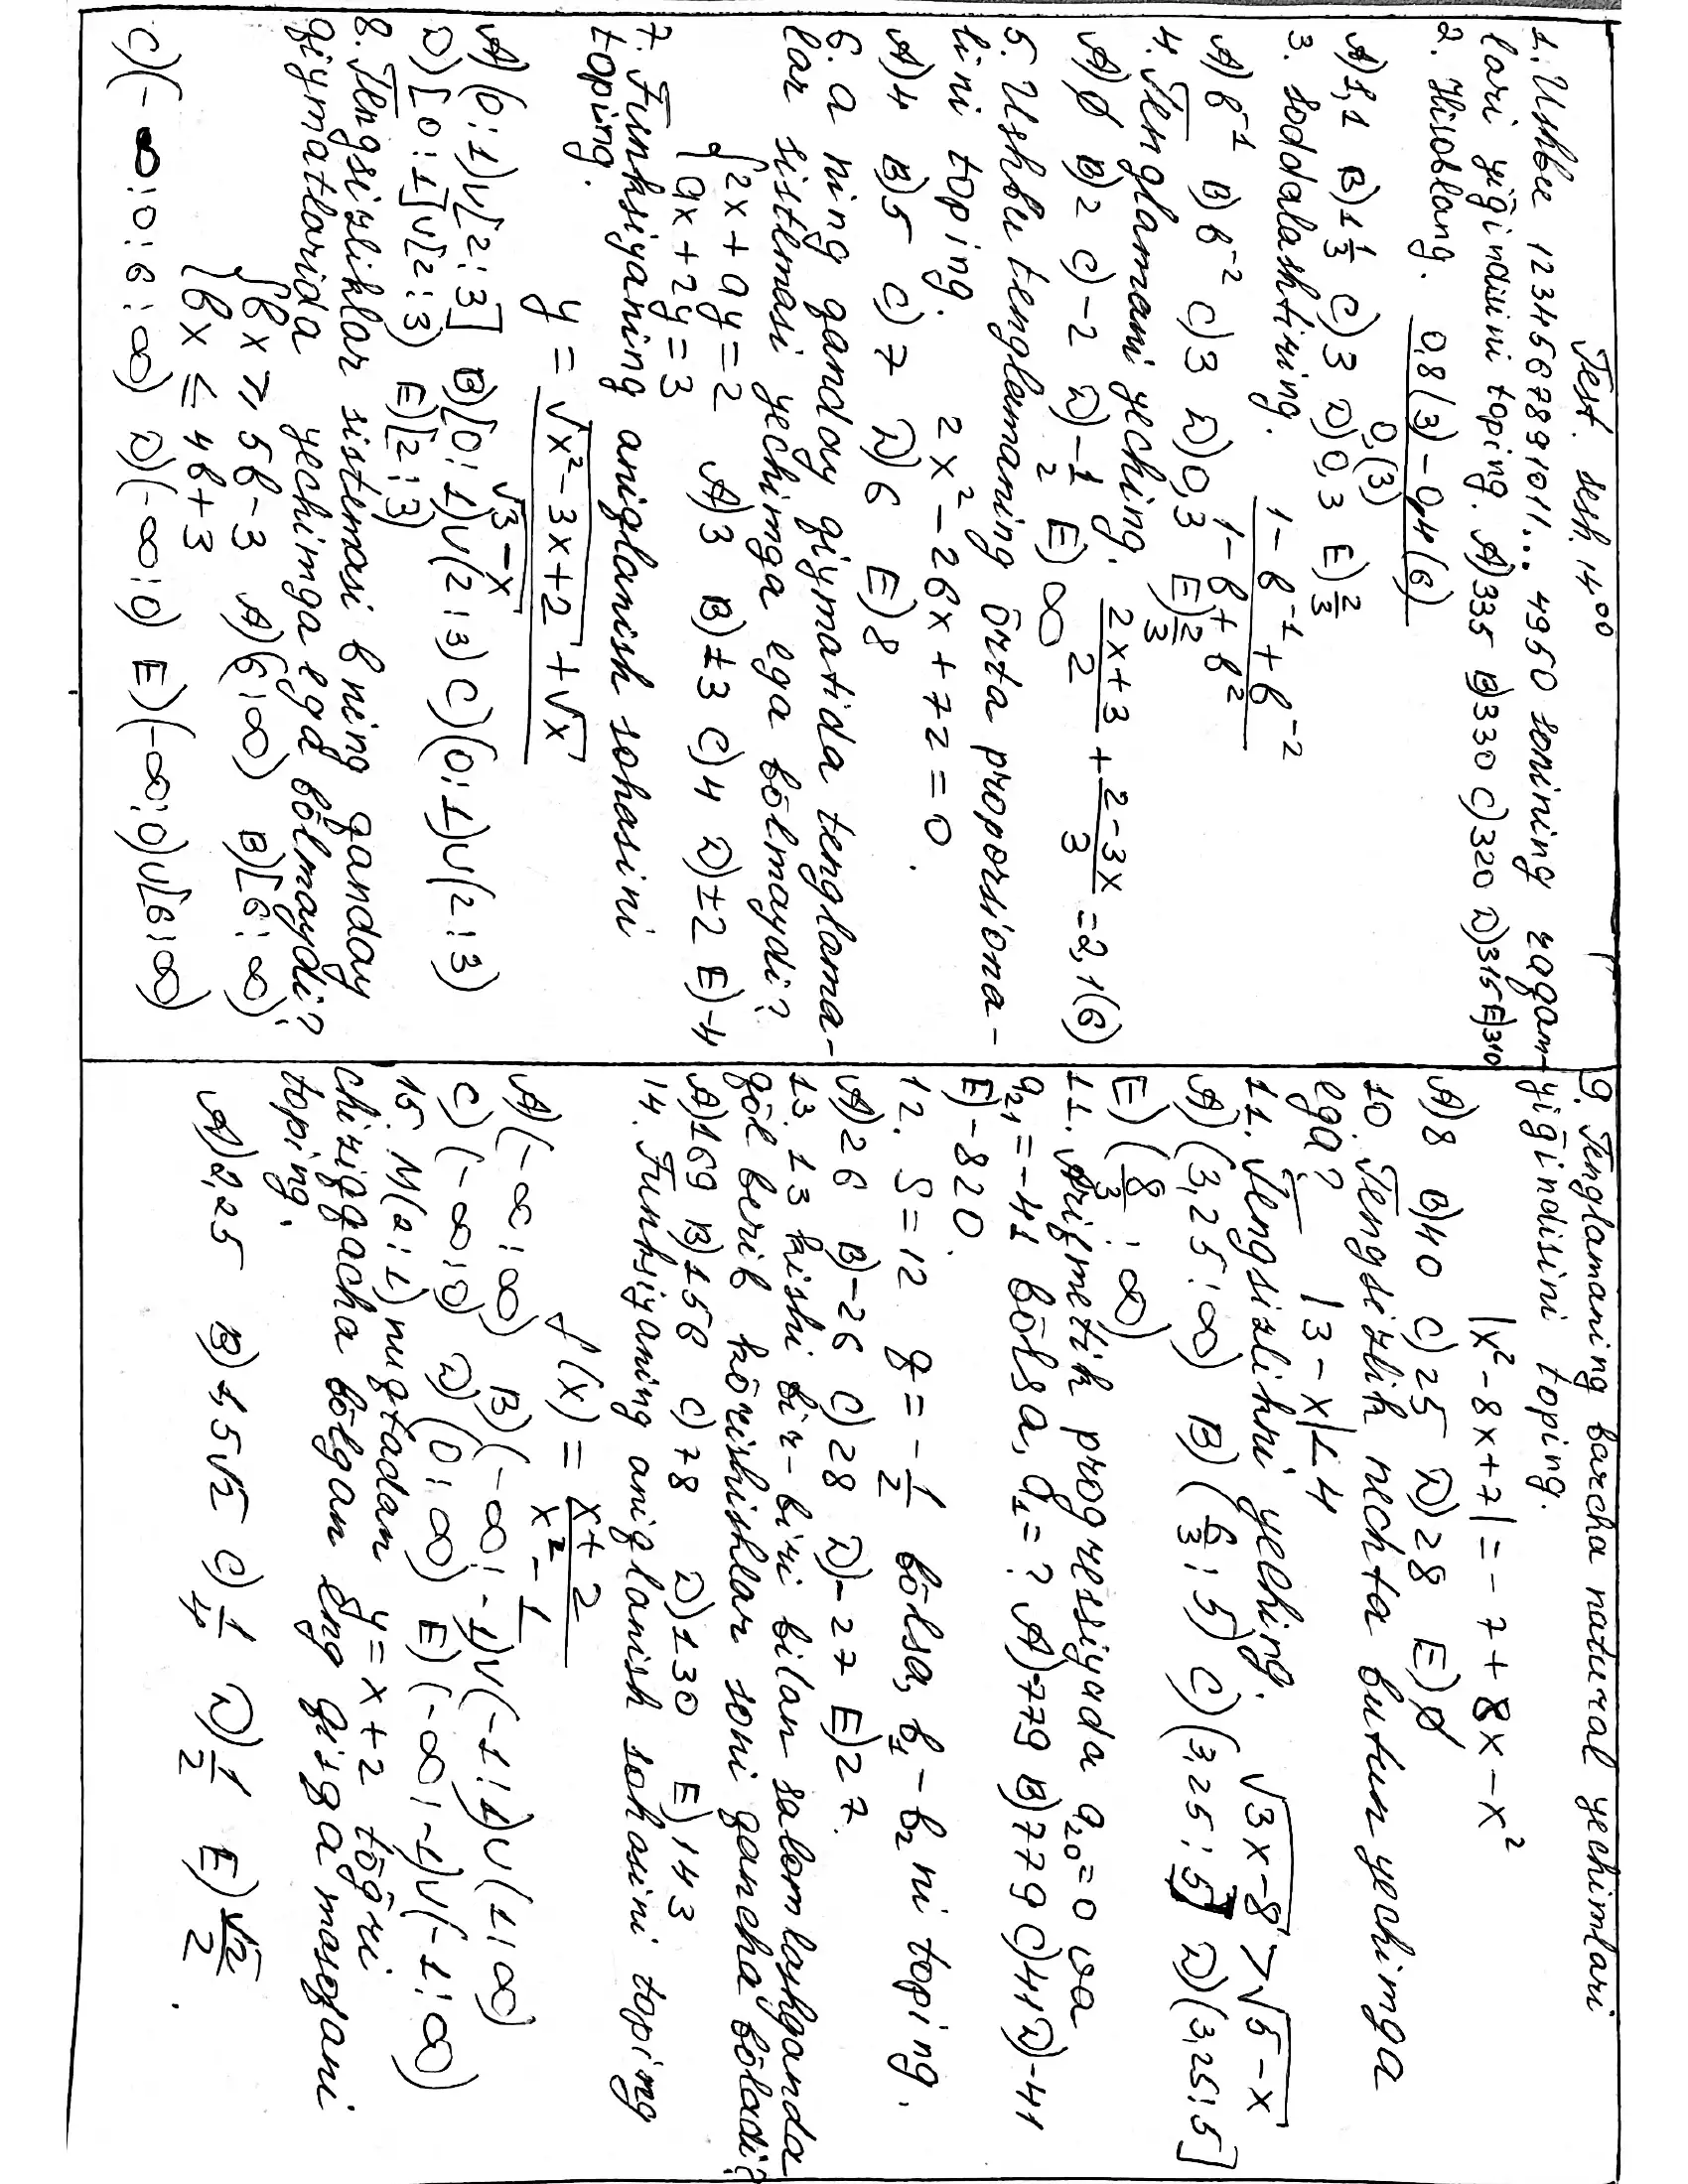 Test. sesh. 14,⁰⁰
1. Ushbu 1234567891011... 4950 sonining raqam-
lari yig'indisini toping. A)335 B)330 C)320 D)315 E)310
2. Hisoblang. (0,8(3)-0,4(6))/(0,(3))
A)1,1 B)1 1/3 C)3 D)0,3 E)2/3
3. Soddalashtiring. (1-b⁻¹+b⁻²)/(1-b+b²)
A)b⁻¹ B)b⁻² C)3 D)0,3 E)2/3
4. Tenglamani yeching. (2x+3)/2 + (2-3x)/3 = 2,1(6)
A)∅ B)2 C)-2 D)-1/2 E)∞
5. Ushbu tenglamaning o'rta proporsiona-
lini toping. 2x²-26x+72=0.
A)4 B)5 C)7 D)6 E)8
6. a ning qanday qiymatida tenglama-
lar sistemasi yechimga ega bo'lmaydi?
{2x+ay=2
{ax+2y=3 A)3 B)±3 C)4 D)±2 E)-4
7. Funksiyaning aniqlanish sohasini
toping.
y = (√x²-3x+2 + √x)/(√3-x)
A)(0;1)∪[2;3] B)[0;1)∪(2;3) C)(0;1)∪(2;3)
D)[0;1]∪[2;3) E)[2;3)
8. Tengsizliklar sistemasi b ning qanday
qiymatlarida yechimga ega bo'lmaydi?
{bx ≥ 5b-3
{bx ≤ 4b+3 A)(6;∞) B)[6;∞)
C)(-∞;0;6;∞) D)(-∞;0) E)(-∞;0)∪[6;∞)
9. Tenglamaning barcha natural yechimlari
yig'indisini toping.
|x²-8x+7| = -7+8x-x²
A)8 B)40 C)25 D)28 E)∅
10. Tengsizlik nechta butun yechimga
ega? |3-x|<4
11. Tengsizlikni yeching. √3x-8 > √5-x
A)(3,25;∞) B)(6/3;5) C)(3,25;5) D)(3,25;5]
E)(8/3;∞)
11. Arifmetik progressiyada a₂₀=0 va
a₂₁=-41 bo'lsa, a₁=? A)-779 B)779 C)41 D)-41
E)-820.
12. S=12 q=-1/2 bo'lsa, b₁-b₂ ni toping.
A)26 B)-26 C)28 D)-27 E)27.
13. 13 kishi bir-biri bilan salomlashganda
qo'l berib ko'rishishlar soni qancha bo'ladi?
A)169 B)156 C)78 D)130 E)143
14. Funksiyaning aniqlanish sohasini toping
f(x) = (x+2)/(x²-1)
A)(-∞;∞) B)(-∞;-1)∪(-1;1)∪(1;∞)
C)(-∞;0) D)(0;∞) E)(-∞;-1)∪(-1;∞)
15. M(2;1) nuqtadan y=x+2 to'g'ri
chiziqqacha bo'lgan eng qisqa masofani
toping.
A)2,25 B)1,5√2 C)1/4 D)1/2 E)√2/2